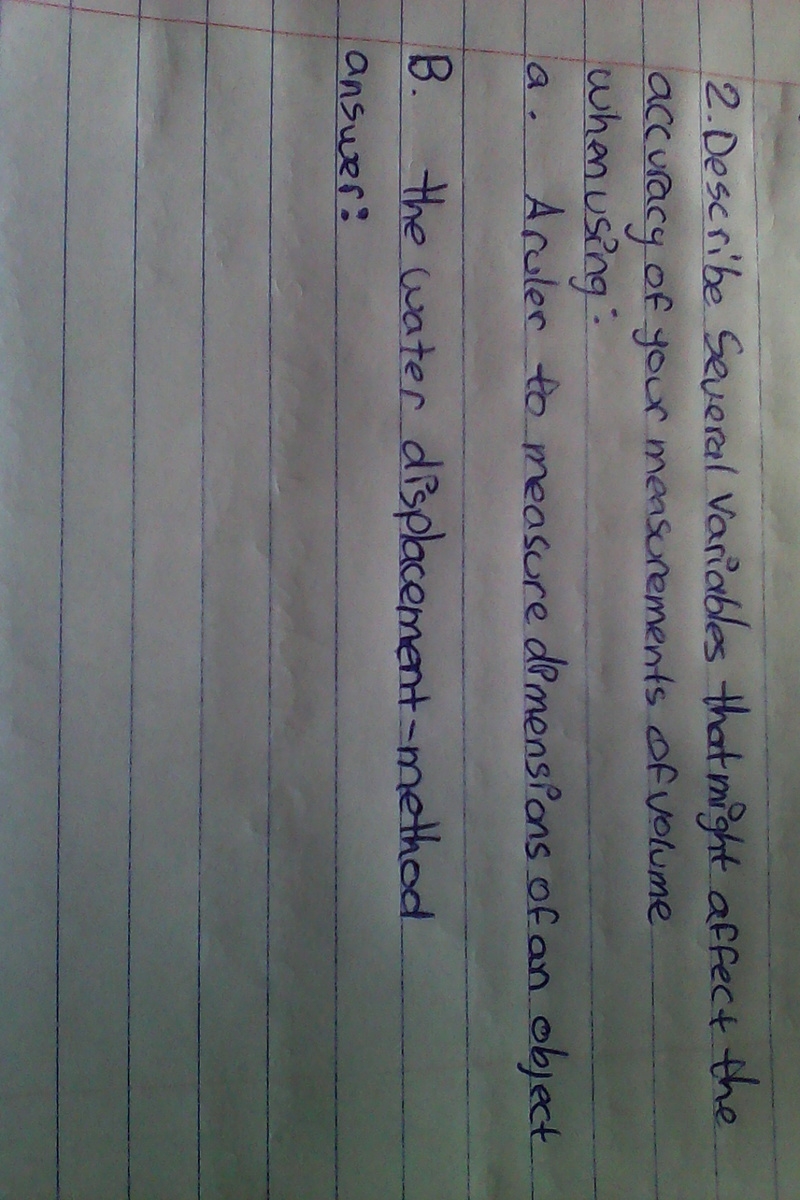 2. Describe Several variables that might affect the
accuracy of your measurements of volume
when using:
a. A ruler to measure dimensions of an object
B. the water displacement-method
answer: